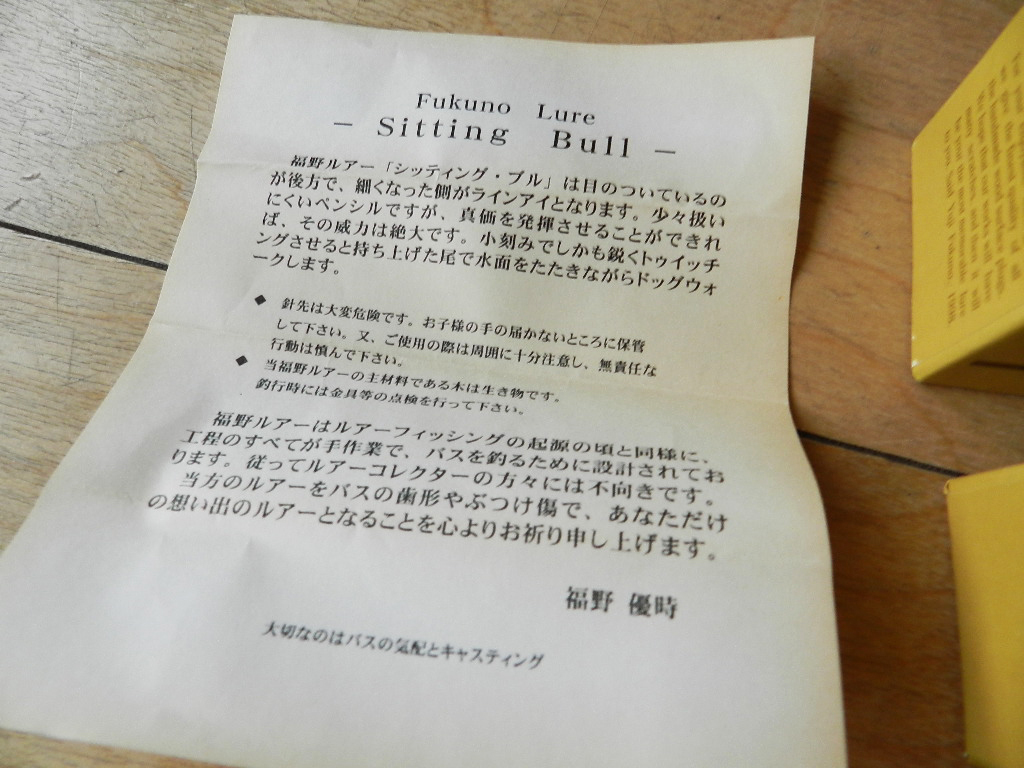 Fukuno Lure
– Sitting Bull –
福野ルアー「シッティング・ブル」は目のついているの
が後方で、細くなった側がラインアイとなります。少々扱い
にくいペンシルですが、真価を発揮させることができれ
ば、その威力は絶大です。小刻みでしかも鋭くトゥイッチ
ングさせると持ち上げた尾で水面をたたきながらドッグウォ
ークします。
◆ 針先は大変危険です。お子様の手の届かないところに保管
して下さい。又、ご使用の際は周囲に十分注意し、無責任な
行動は慎んで下さい。
◆ 当福野ルアーの主材料である木は生き物です。
釣行時には金具等の点検を行って下さい。
福野ルアーはルアーフィッシングの起源の頃と同様に、
工程のすべてが手作業で、バスを釣るために設計されてお
ります。従ってルアーコレクターの方々には不向きです。
当方のルアーをバスの歯形やぶつけ傷で、あなただけ
の想い出のルアーとなることを心よりお祈り申し上げます。
福野 優時
大切なのはバスの気配とキャスティング